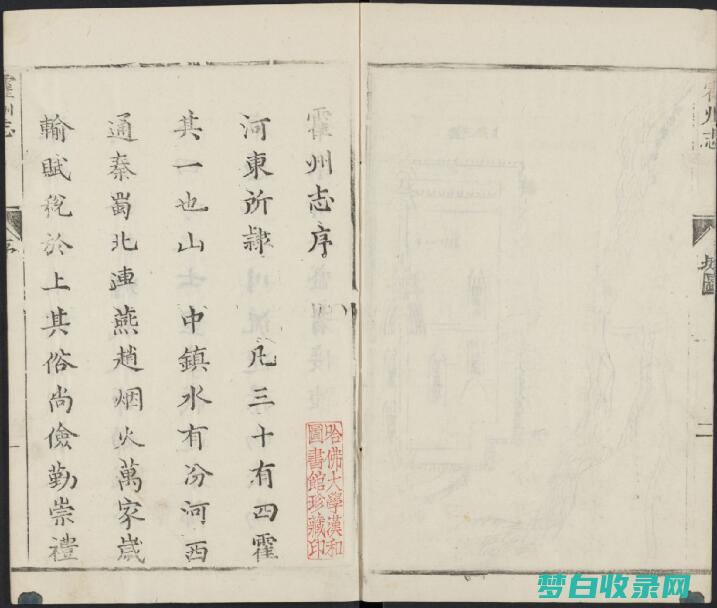 霍州志
圖
二
霍州志序
河東所隸 凡三十有四霍
其一也山 中鎮水有汾河西
通秦蜀北連燕趙烟火萬家歲
輸賦稅於上其俗尚儉勤崇禮
霍州志
序
一
哈佛大學漢和
圖書館珍藏印
梦白收录网